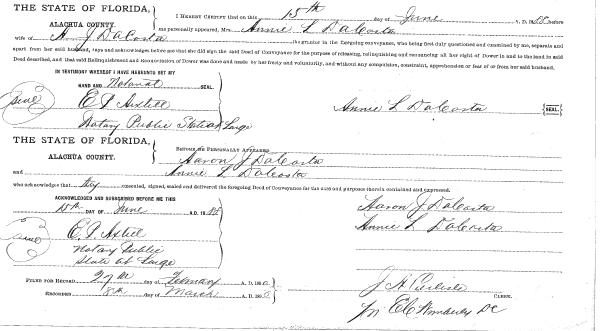 THE STATE OF FLORIDA,
ALACHUA COUNTY.
I HEREBY CERTIFY that on this 15th day of June A. D. before
me personally appeared, Mrs. Annie L DaCosta
wife of A J DaCosta the grantor in the foregoing conveyance, who being first duly questioned and examined by me, separate and
apart from her said husband, says and acknowledges before me that she did sign the said Deed of Conveyance for the purpose of releasing, relinquishing and renouncing all her right of Dower in and to the land in said
Deed described, and that said Relinquishment and Renunciation of Dower was done and made by her freely and voluntarily, and without any compulsion, constraint, apprehension or fear of or from her said husband.
IN TESTIMONY WHEREOF I HAVE HEREUNTO SET MY
HAND AND Notarial SEAL.
E. P. Axtell
Notary Public State at Large
Annie L DaCosta {SEAL}
THE STATE OF FLORIDA,
ALACHUA COUNTY.
BEFORE ME PERSONALLY APPEARED
Aaron J DaCosta
and Annie L DaCosta
who acknowledges that they executed, signed, sealed and delivered the foregoing Deed of Conveyance for the uses and purposes therein contained and expressed.
ACKNOWLEDGED AND SUBSCRIBED BEFORE ME THIS
15th DAY OF June A.D. 18
E. P. Axtell
Notary Public
State at Large
Aaron J DaCosta
Annie L DaCosta
FILED FOR RECORD 27th day of February A. D. 188
RECORDED 18th day of March A. D. 188
J A Carlisle
CLERK.
Per E C Wimberly DC